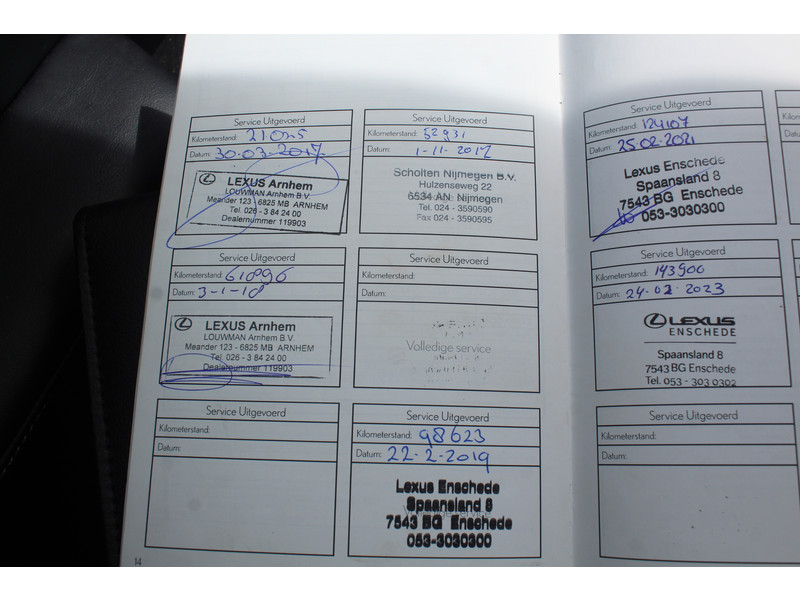 Service Uitgevoerd
Kilometerstand: 21025
Datum: 30-03-2017
LEXUS Arnhem
LOUWMAN Arnhem B.V
Meander 123 - 6825 MB ARNHEM
Tel. 026 - 3 84 24 00
Dealernummer 119903
Service Uitgevoerd
Kilometerstand: 52931
Datum: 1-11-2017
Scholten Nijmegen B.V.
Hulzenseweg 22
6534 AN Nijmegen
Tel. 024 - 3590590
Fax 024 - 3590595
Service Uitgevoerd
Kilometerstand: 61896
Datum: 3-1-18
LEXUS Arnhem
LOUWMAN Arnhem B.V
Meander 123 - 6825 MB ARNHEM
Tel. 026 - 3 84 24 00
Dealernummer 119903
Service Uitgevoerd
Kilometerstand:
Datum:
Volledige service
Service Uitgevoerd
Kilometerstand:
Datum:
Service Uitgevoerd
Kilometerstand: 98623
Datum: 22-2-2019
Lexus Enschede
Spaansland 8
7543 BG Enschede
053-3030300
14
Service Uitgevoerd
Kilometerstand: 124107
Datum: 25-02-2021
Lexus Enschede
Spaansland 8
7543 BG Enschede
053-3030300
Service Uitgevoerd
Kilometerstand: 143900
Datum: 24-02-2023
LEXUS
ENSCHEDE
Spaansland 8
7543 BG Enschede
Tel. 053 - 303 0302
Service Uitgevoerd
Kilometerstand:
Datum: